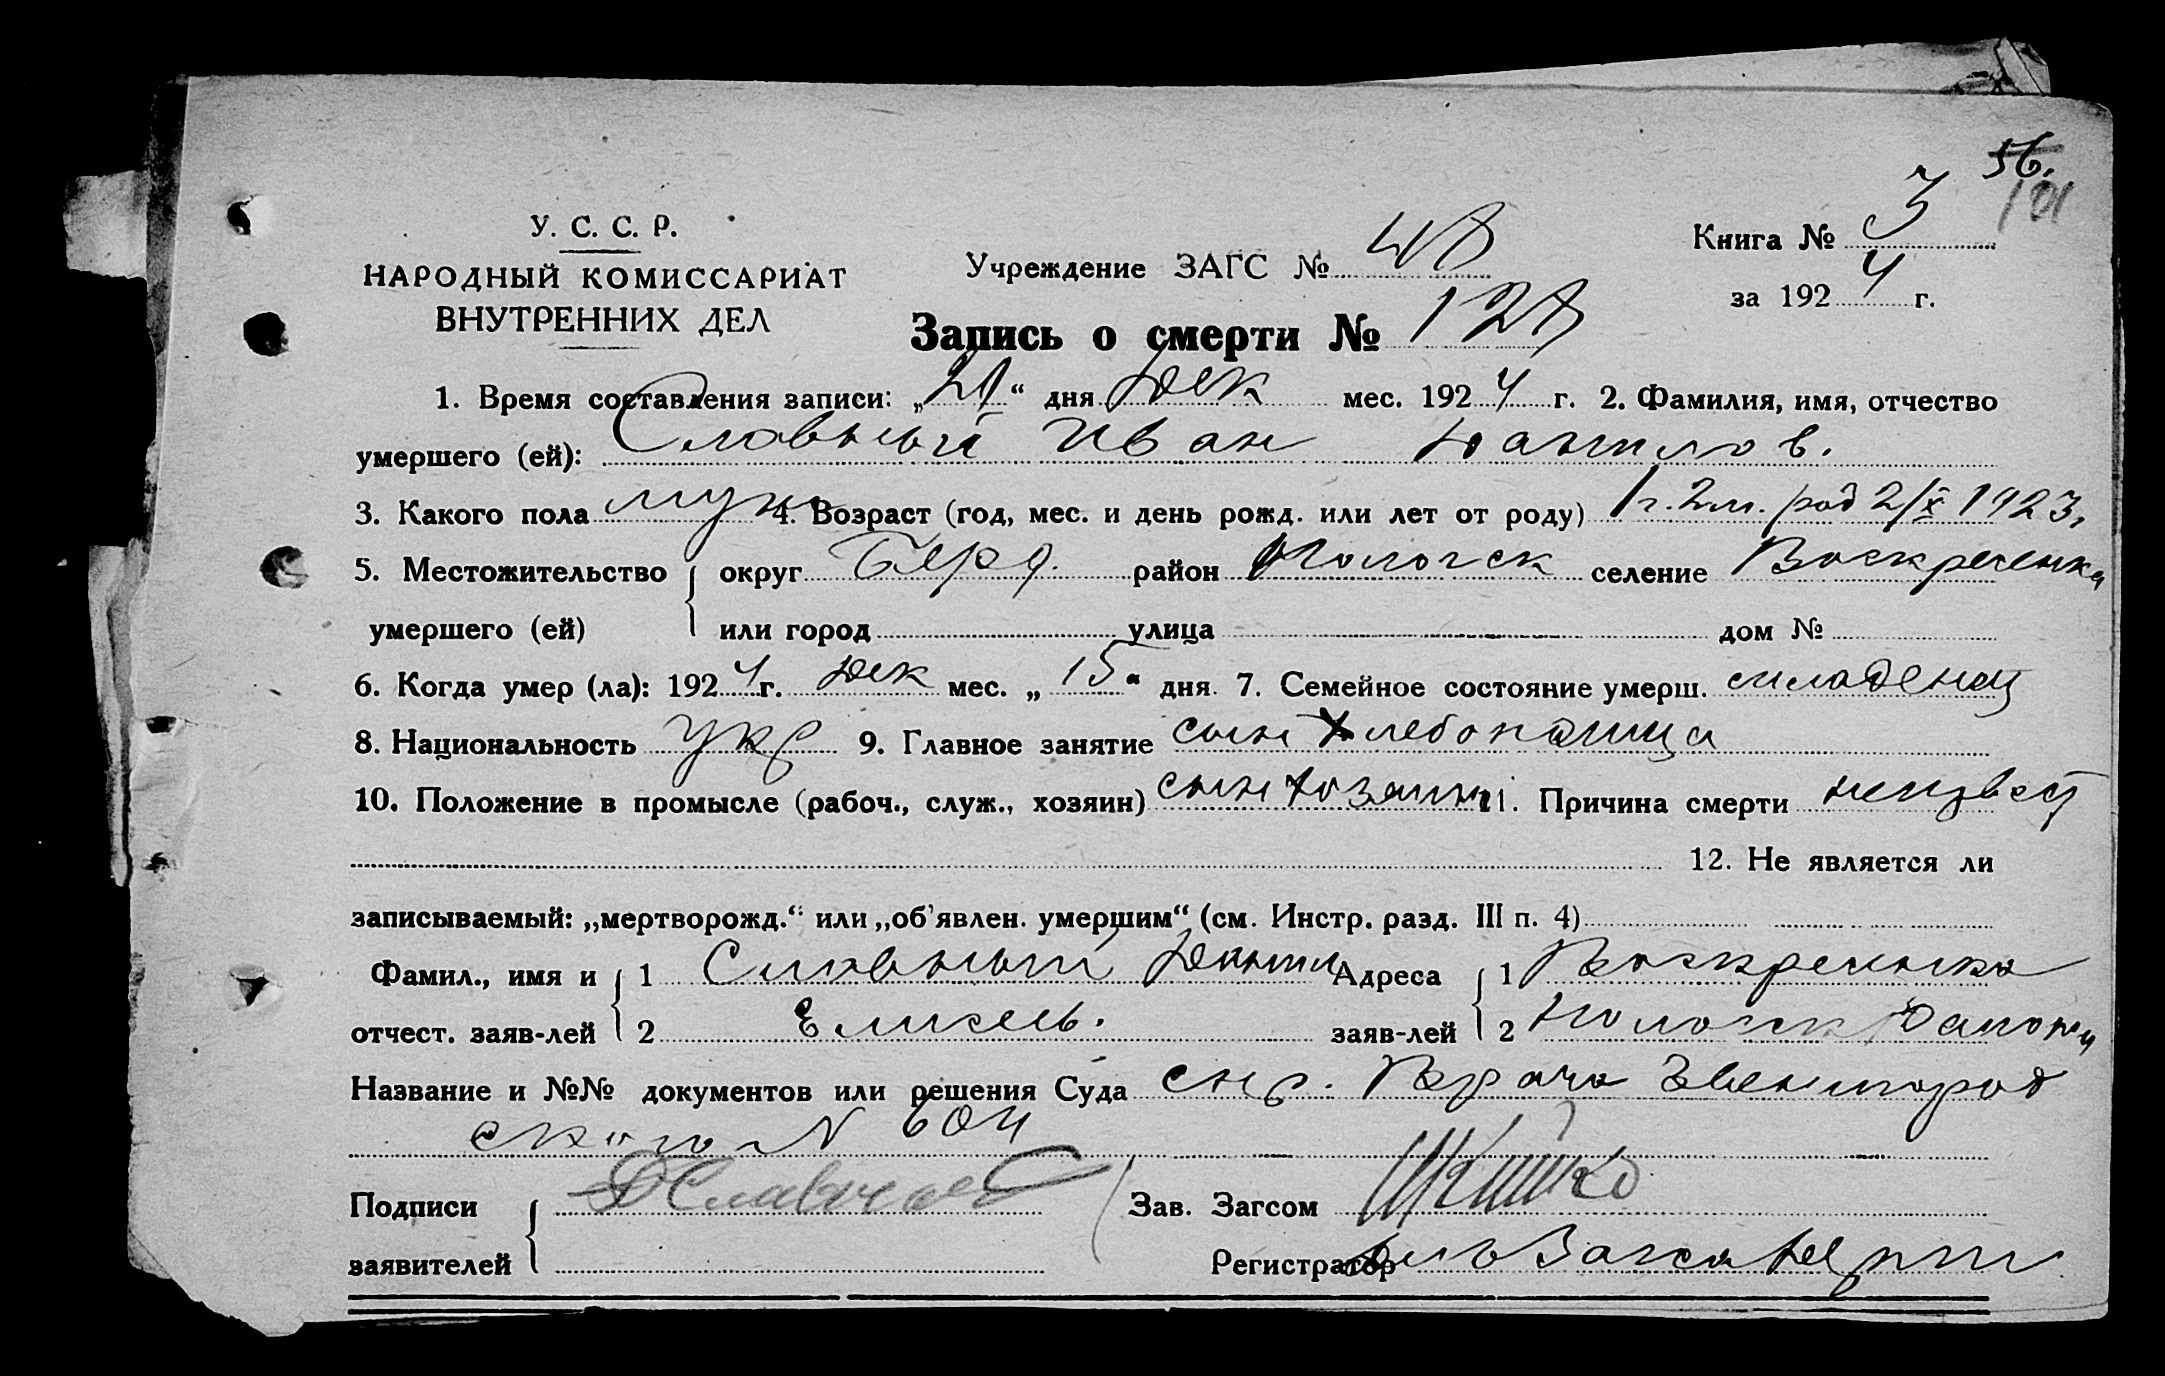 56.
101
У. С. С. Р.
НАРОДНЫЙ КОМИССАРИАТ
ВНУТРЕННИХ ДЕЛ
Учреждение ЗАГС №
Книга № 3
за 1924 г.
Запись о смерти № 128
1. Время составления записи: „21“ дня Дек мес. 1924 г. 2. Фамилия, имя, отчество
умершего (ей): Славный Иван Данилов.
3. Какого пола муж 4. Возраст (год, мес. и день рожд. или лет от роду) 1 г. 2 м. род 2/X 1923.
5. Местожительство округ Берд. район Пологск селение Воскресенка
умершего (ей) или город улица дом №
6. Когда умер (ла): 1924 г. Дек мес. „15“ дня. 7. Семейное состояние умерш. младенец
8. Национальность укр 9. Главное занятие сын хлебопашца
10. Положение в промысле (рабоч., служ., хозяин) сын хозяина 11. Причина смерти неизвест
12. Не является ли
записываемый: „мертворожд.“ или „об'явлен. умершим“ (см. Инстр. разд. III п. 4)
Фамил., имя и 1 Славный Данил Адреса 1 Воскресенка
отчест. заяв-лей 2 Елисеев. заяв-лей 2 Пологск района
Название и №№ документов или решения Суда спр. Врача Звенигород
ского N 604
Подписи Д Славный Зав. Загсом
заявителей Регистратор